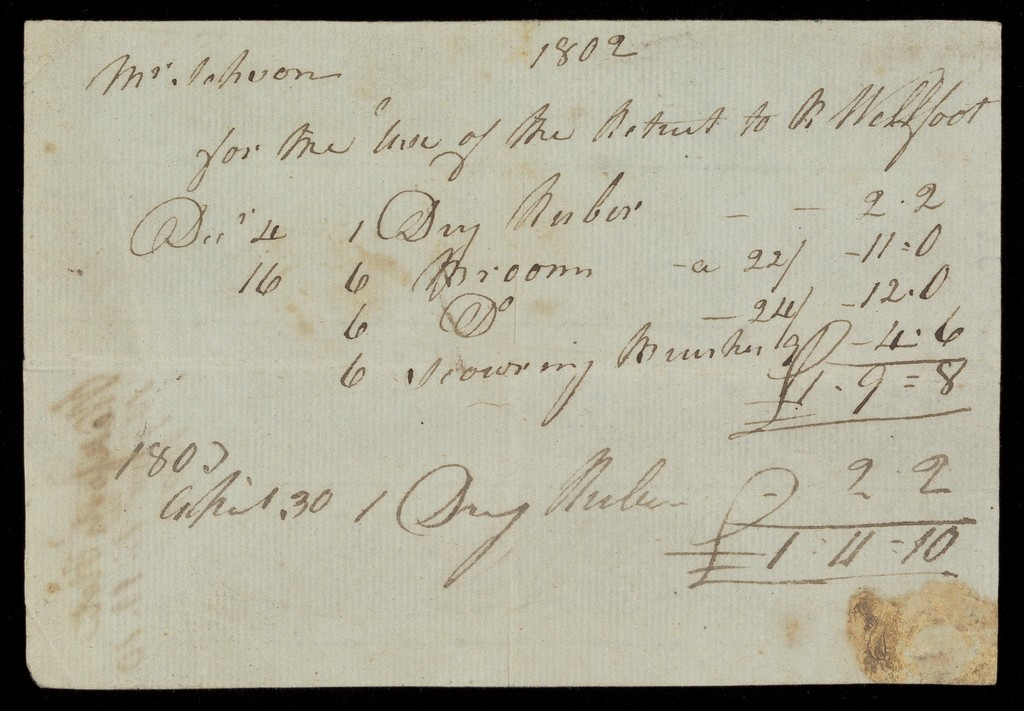 1802
Mr. Schoon
for the Use of the Retreat to R Wellfoot
Decr 4 1 Dry Ruber - - 2.2
16 6 Brooms - a 22/ - 11=0
6 Do - 24/ - 12.0
6 Scowring Brushes 9 - 4.6
£1.9=8
1803
April 30 1 Dry Ruber - 2 2
£1:11=10